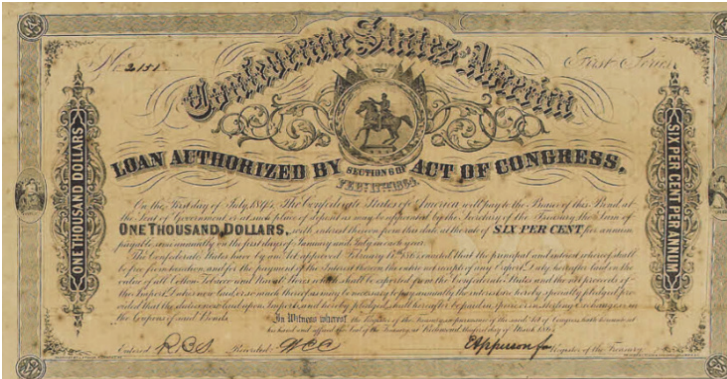 No. 2151
First Series
Confederate States America
LOAN AUTHORIZED BY SECTION 6 OF ACT OF CONGRESS.
ONE THOUSAND DOLLARS
SIX PER CENT PER ANNUM
On the first day of July, The Confederate States of America will pay to the Bearer of this Bond at
the Seat of Government or at such place of deposit as may be appointed by the Secretary of the Treasury the Sum of
ONE THOUSAND DOLLARS, with interest thereon from this date at the rate of SIX PER CENT per annum
payable semi annually on the first days of January and July in each year.
The Confederate States have by an Act approved February 17th enacted that the principal and interest whereof shall
be free from taxation, and for the payment of the interest thereon the entire net receipts of any Export Duty hereafter laid on the
value of all Cotton Tobacco and Naval Stores which shall be exported from the Confederate States and the net proceeds of
the Import Duties now laid or so much thereof as may be necessary to pay annually the interest are hereby specially pledged
the Coupons of said Bonds.
In Witness whereof the Register of the Treasury in pursuance of the said Act of Congress hath hereunto set
his hand and affixed the Seal of the Treasury at Richmond this first day of March
Entered R.B.S. Recorded W.C.C. Register of the Treasury